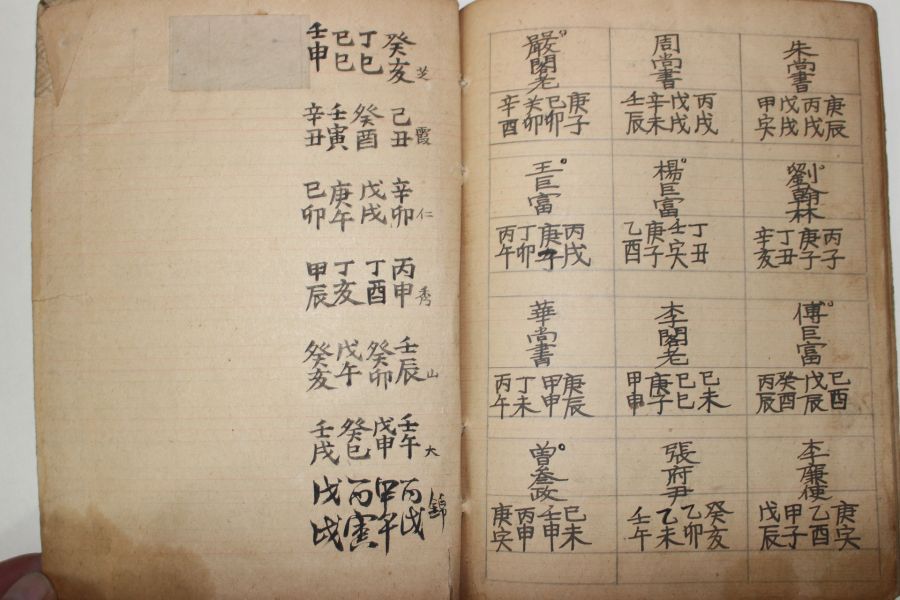 朱尚書
庚辰 丙戌 戊戌 甲寅
周尚書
丙戌 戊戌 辛未 壬辰
嚴閣老
庚子 己卯 癸卯 辛酉
劉翰林
丙子 庚子 丁丑 辛亥
楊巨富
丁丑 壬寅 庚子 乙酉
王巨富
丙戌 庚 丁卯 丙午
傅巨富
己酉 戊辰 癸酉 丙辰
李閣老
己未 己巳 庚子 甲申
華尚書
庚辰 甲申 丁未 丙午
李廉使
庚寅 乙酉 甲子 戊辰
張府尹
癸亥 乙卯 乙未 壬午
曾叅政
己未 壬申 丙申 庚寅
芝 癸亥 丁巳 己巳 壬申
霞 己丑 癸酉 壬寅 辛丑
仁 辛卯 戊戌 庚午 己卯
秀 丙申 丁酉 丁亥 甲辰
山 壬辰 癸卯 戊午 癸亥
大 壬午 戊申 癸巳 壬戌
錦 丙戌 甲午 丙寅 戊戌